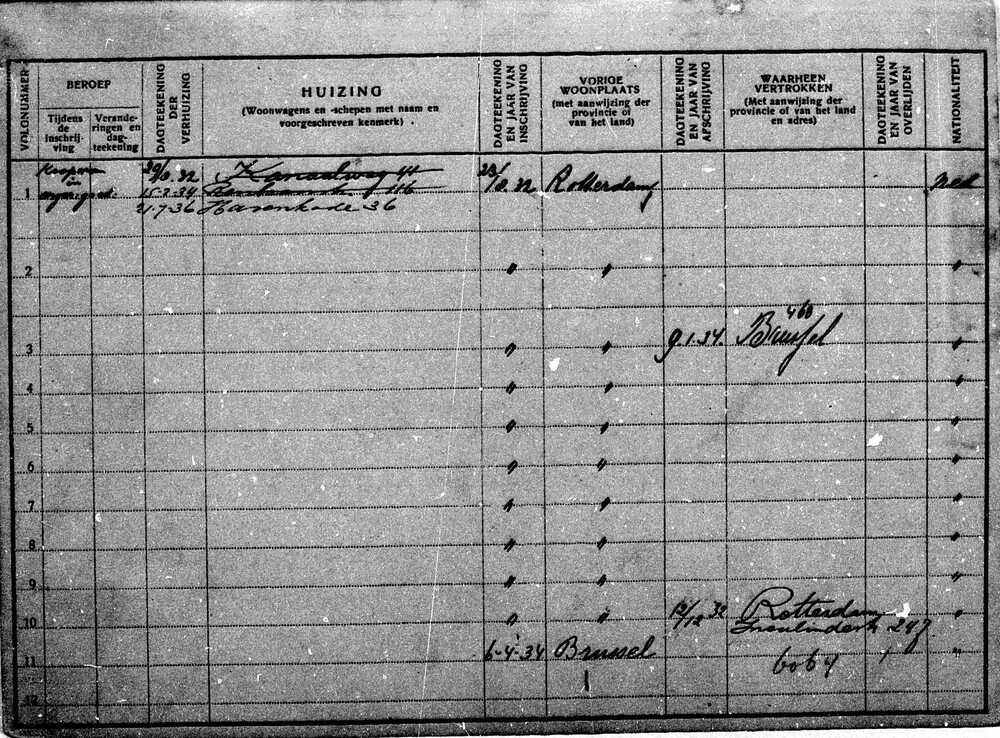 VOLGNUMMER
BEROEP
Tijdens de inschrij- ving
Verande- ringen en dag- teekening
DAGTEEKENING DER VERHUIZING
HUIZING
(Woonwagens en -schepen met naam en
voorgeschreven kenmerk)
DAGTEEKENING EN JAAR VAN INSCHRIJVING
VORIGE
WOONPLAATS
(met aanwijzing der
provincie of
van het land)
DAGTEEKENING EN JAAR VAN AFSCHRIJVING
WAARHEEN
VERTROKKEN
(Met aanwijzing der
provincie of van het land
en adres)
DAGTEEKENING EN JAAR VAN OVERLIJDEN
NATIONALITEIT
Kanaalweg 44
Rotterdam
1 15-2-34 116 ned
21-7-36 Havenkade 36
2 " " "
460
3 " " 9-1-34. Brussel "
4 " " "
5 " " "
6 " " "
7 " " "
8 " " "
9 " " "
10 " " 12/12 32 Rotterdam "
247
11 6-4-34 Brussel 6064 "
12